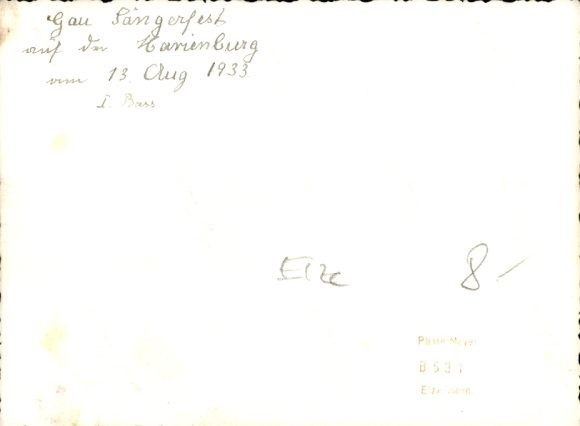 Gau Sängerfest
auf der Marienburg
am 13. Aug 1933
I. Bass
Elze
8.-
Photo-Meyer
B 531